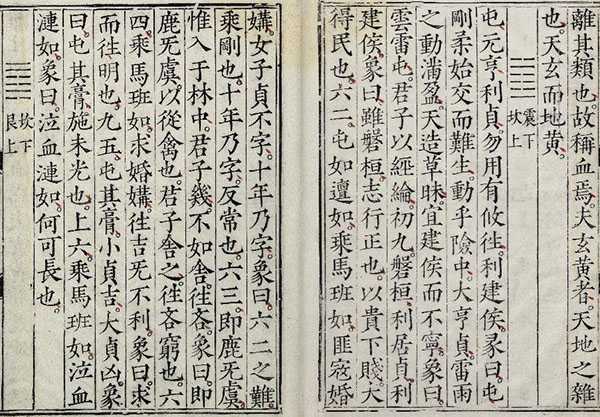 離其類也故稱血焉夫玄黃者天地之雜
也天玄而地黃
震下
坎上
屯元亨利貞勿用有攸往利建侯彖曰屯
剛柔始交而難生動乎險中大亨貞雷雨
之動滿盈天造草昧宜建侯而不寧象曰
雲雷屯君子以經綸初九磐桓利居貞利
建侯象曰雖磐桓志行正也以貴下賤大
得民也六二屯如邅如乘馬班如匪寇婚
媾女子貞不字十年乃字象曰六二之難
乘剛也十年乃字反常也六三即鹿旡虞
惟入于林中君子幾不如舍往吝象曰即
鹿旡虞以從禽也君子舍之往吝窮也六
四乘馬班如求婚媾往吉旡不利象曰求
而往明也九五屯其膏小貞吉大貞凶象
曰屯其膏施未光也上六乘馬班如泣血
漣如象曰泣血漣如何可長也
坎下
艮上